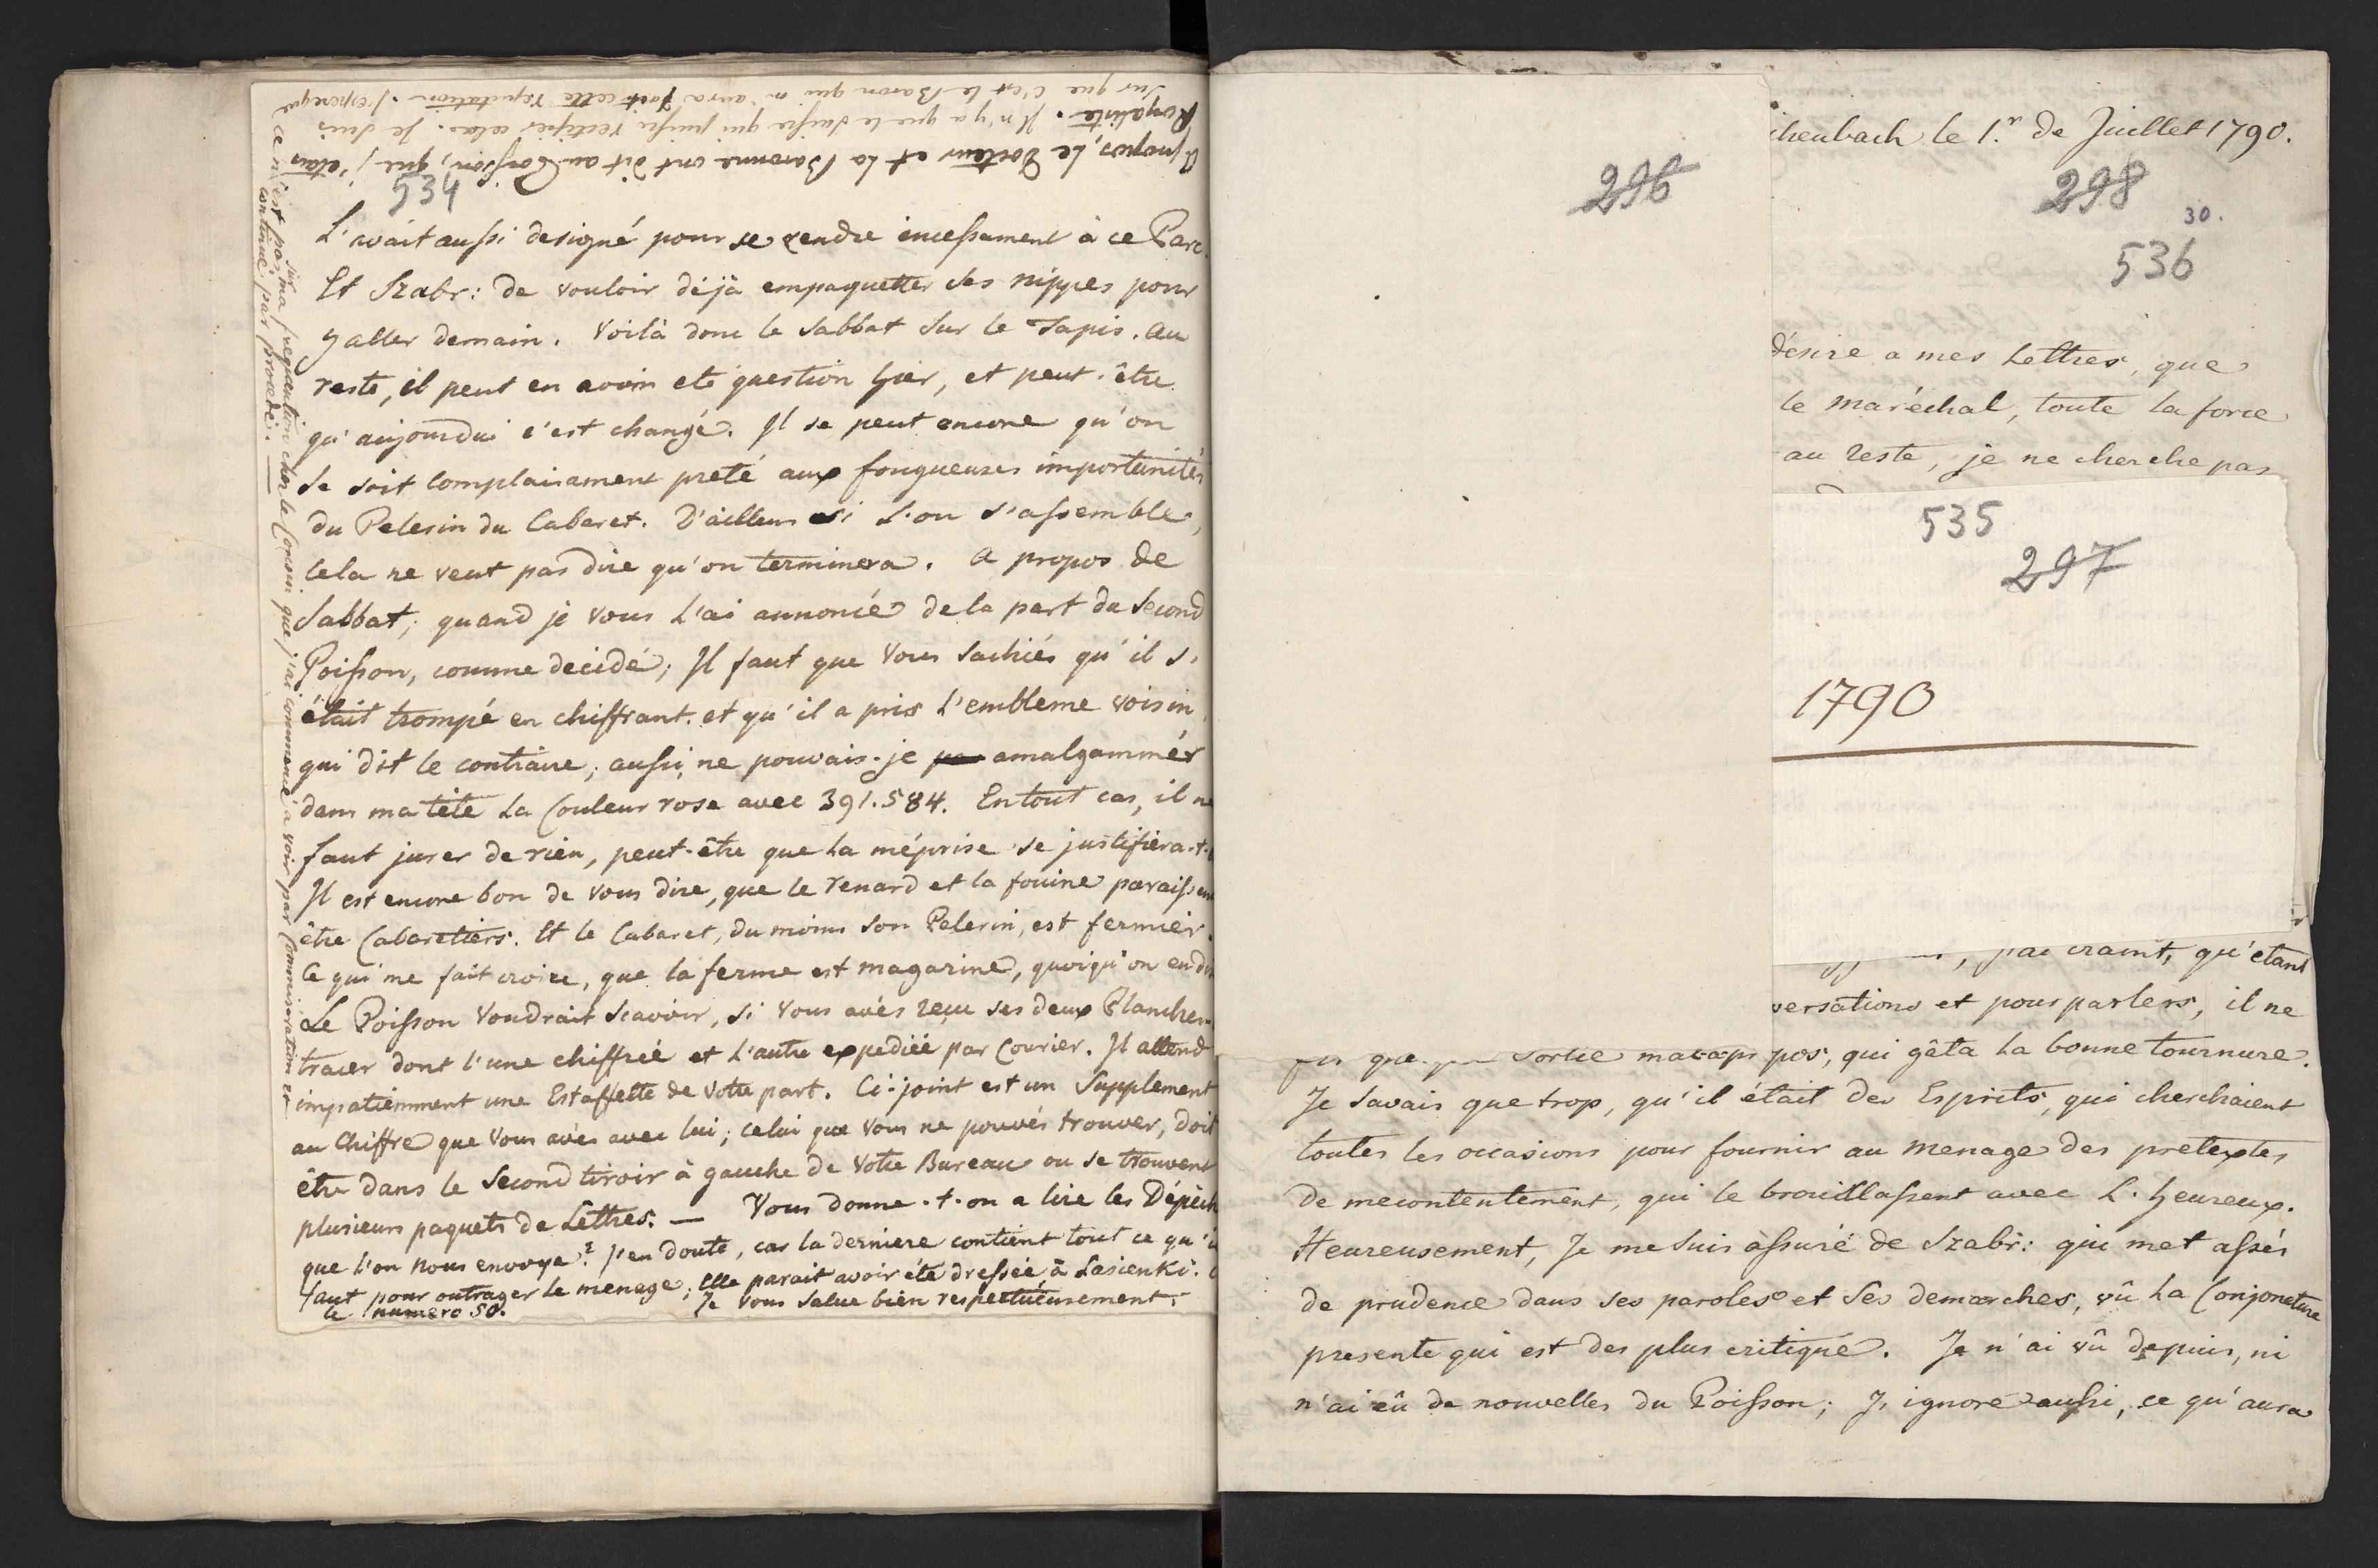 Apropos, Le Docteur et la Baronne ont dit au Poisson, que j'étais
Royaliste. Il n'y a que le Suisse qui puisse rectifier cela. Je suis
sur que c'est le Baron qui m'aura fait cette reputation. J'espere que
ce n'est pas ma frequentation chez le Cousin que j'ai commencé a voir par Commiseration et
continué par procedé. —
534
L'avait aussi designé pour se rendre incessament à ce Parc.
Et Szabr: de vouloir déjà empaquetter ses nippes pour
y aller demain. Voilà donc le Sabbat sur le Tapis. Au
reste, il peut en avoir eté question hier, et peut-être
qu'aujourdui c'est changé. Il se peut encore qu'on
se soit complaisament preté aux fougueuses importunités
du Pelerin du Cabaret. D'ailleurs si l'on s'assemble,
cela ne veut pas dire qu'on terminera. A propos de
Sabbat; quand je vous l'ai annoncé de la part du Second
Poisson, comme decidé; Il faut que vous sachiés qu'il s'
était trompé en chiffrant. et qu'il a pris l'embleme voisin
qui dit le contraire; aussi ne pouvais-je amalgammér
dans ma tête la Couleur rose avec 391. 584. En tout cas, il ne
faut jurer de rien, peut-être que la méprise se justifiera-t-
Il est encore bon de vous dire, que le renard et la fouine paraissen
être Cabaretiers. Et le Cabaret, du moins son Pelerin, est fermier.
Ce qui me fait croire, que la ferme est magazine, quoiqu'on en di
Le Poisson voudrait scavoir, si vous avés reçu ses deux Planches
tracer dont l'une chiffréé et l'autre expediéé par Courier. Il attend
impatiemment une Estaffette de votre part. Ci-joint est un Supplement
au Chiffre que vous avés avec lui; celui que vous ne pouvés trouver, doit
être dans le Second tiroir à gauche de votre Bureau ou se trouvent
plusieurs paquets de Lettres. — Vous donne-t-on a lire les Dépêch
que l'on nous envoye? j'en doute, car la derniere contient tout ce qu'i
faut pour outrager le menage; Elle parait avoir été dresséé à Lasienki.
le numero 50. Je vous salue bien respectueusement.
296
chenbach le 1.r de Juillet 1790.
298
30.
536
désire a mes Lettres, que
le maréchal, toute la force
au reste, je ne cherche pas
535
297
1790
craint, qu'étant
versations et pourparlers, il ne
sortie pos, qui gâta la bonne tournure.
Je savais que trop, qu'il était des Esprits, qui cherchaient
toutes les occasions pour fournir au menage des pretextes
de mecontentement, qui le brouillassent avec L. heureux.
Heureusement, Je me suis assuré de Szabr: qui met assés
de prudence dans ses paroles et ses demarches, vû la Conjoncture
presente qui est des plus critique. Je n'ai vû depuis, ni
n'ai eû de nouvelles du Poisson; J'ignore aussi, ce qu'aura